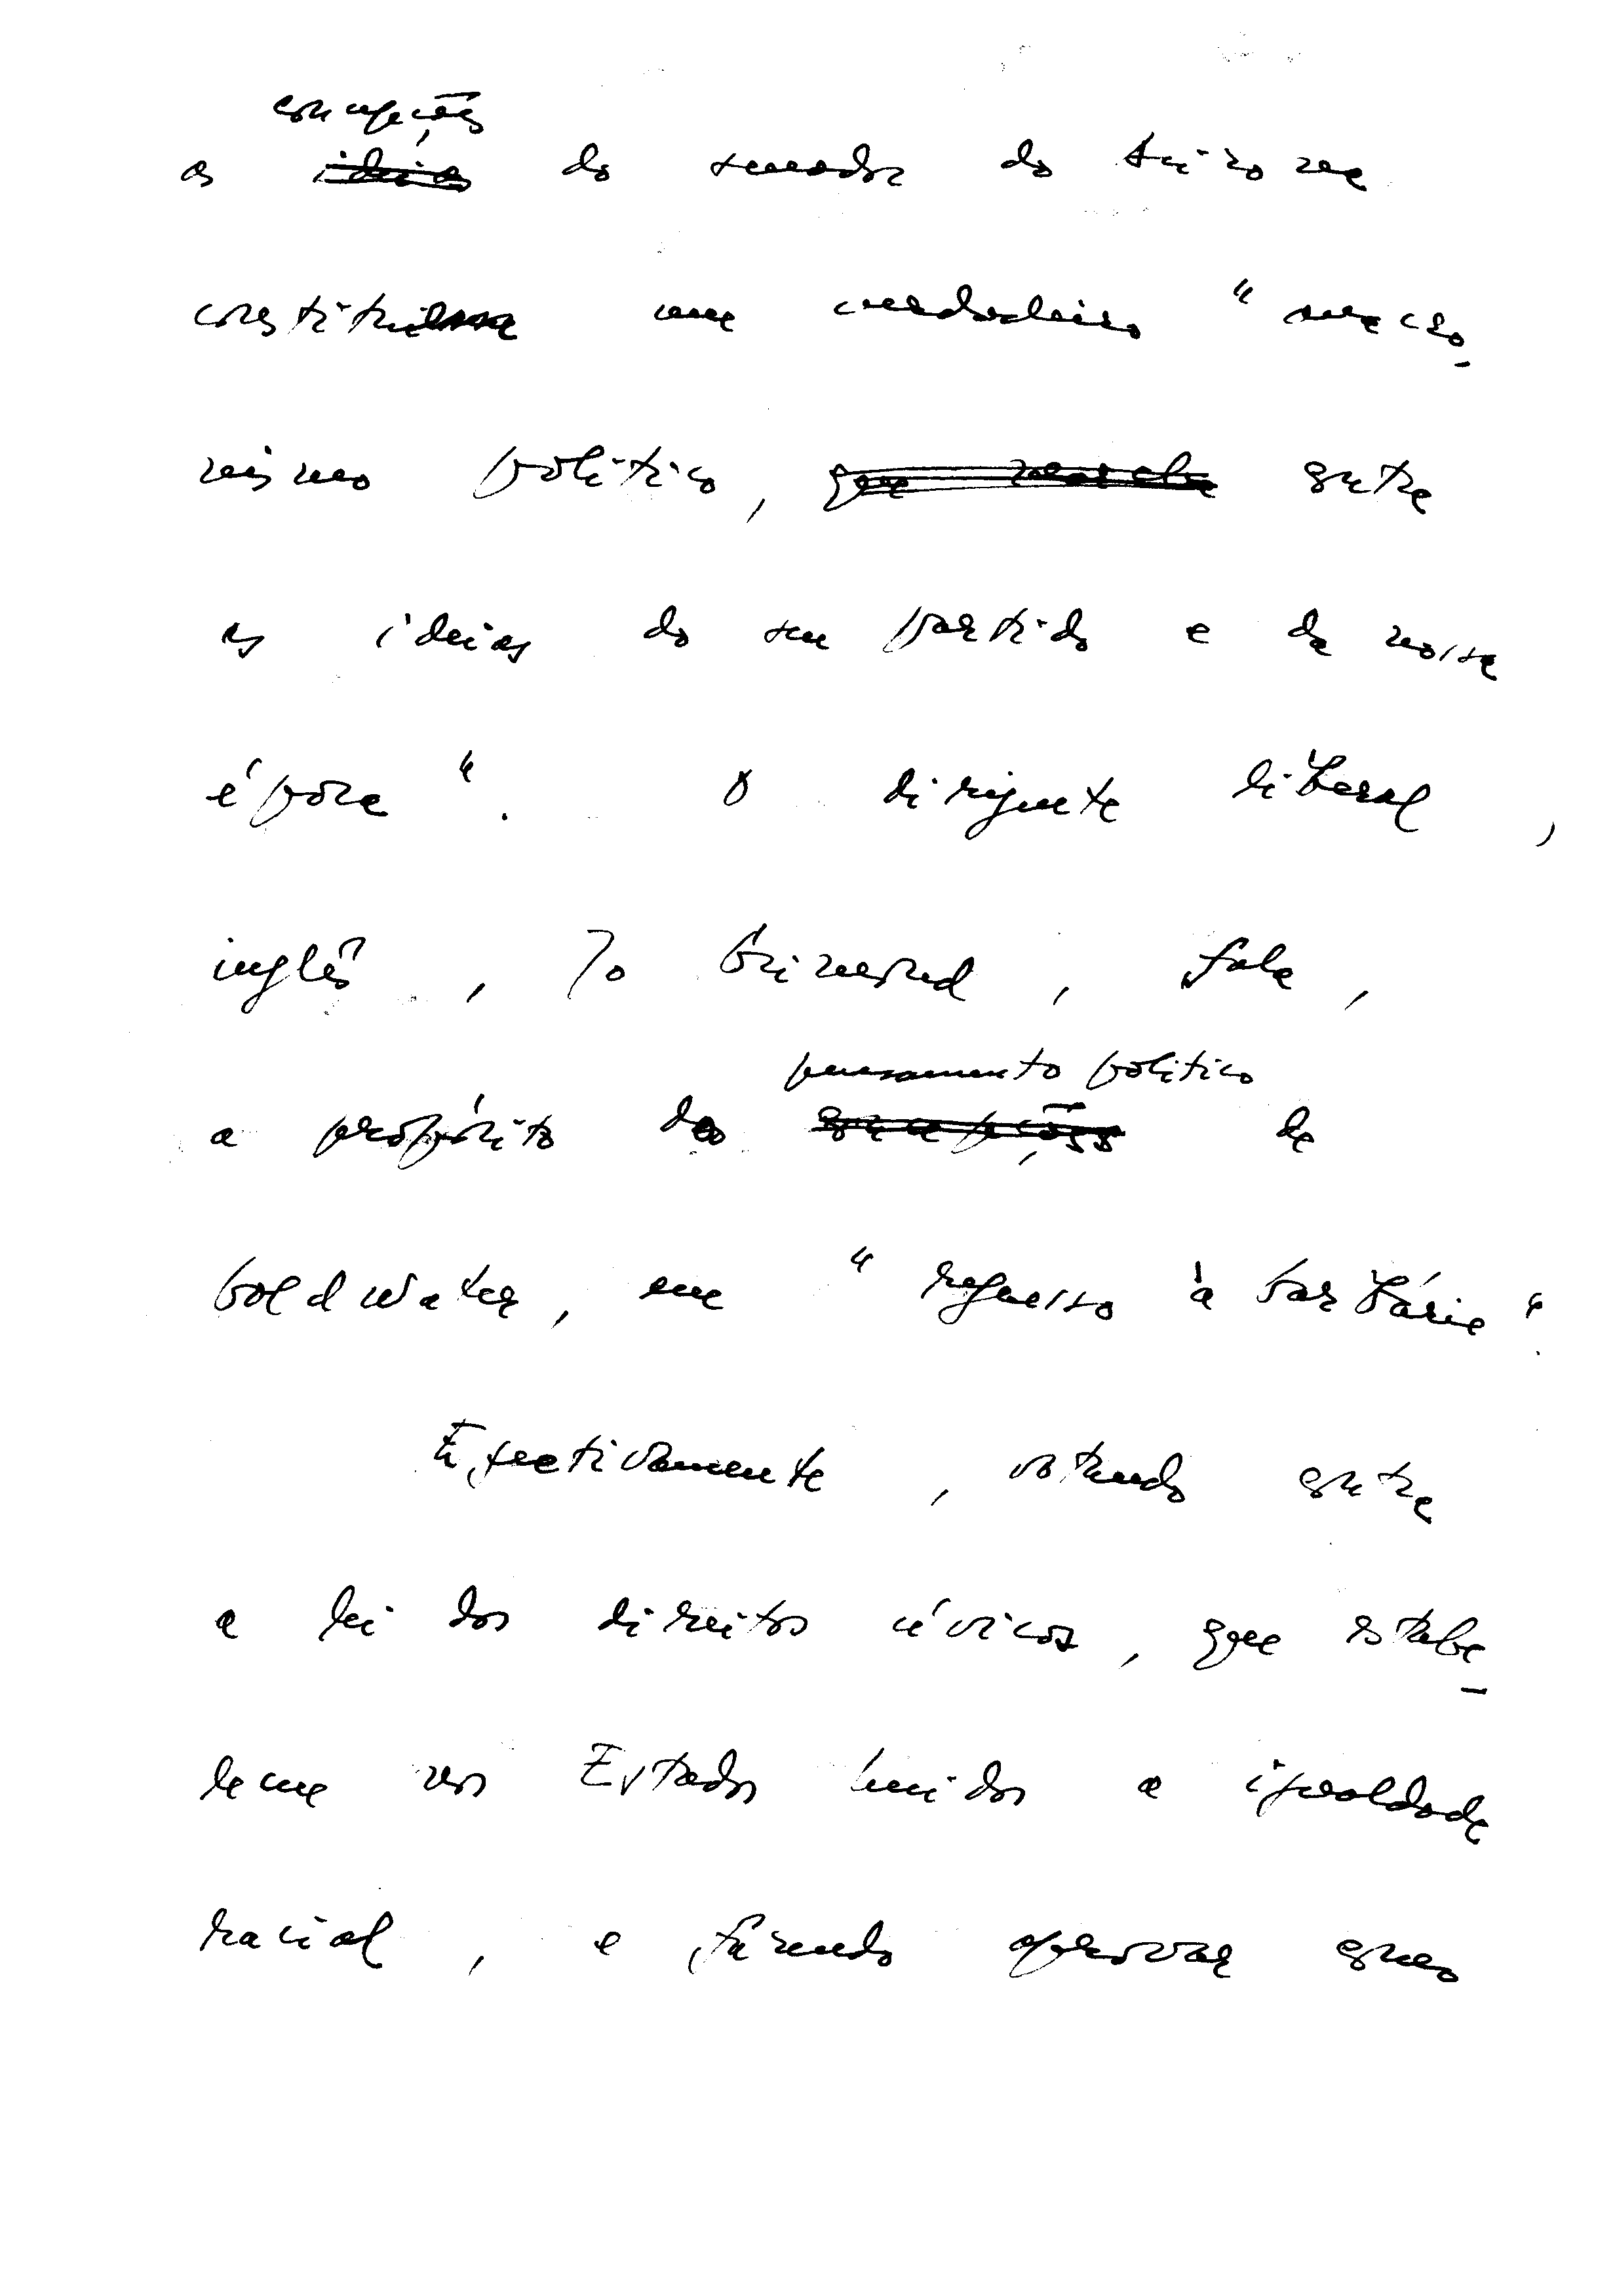 concepções
as ideias do senador do Arizona
constituem um verdadeiro "anacro-
nismo político, entre
as ideias do seu partido e da nossa
época". O dirigente liberal,
inglês, Jo Grimond, fala,
pensamento político
a propósito do concepções de
Goldwater, em "regresso à barbárie".
Efectivamente, votando contra
a lei dos direitos cívicos, que estabe-
lece nos Estados Unidos a igualdade
racial, e fazendo aprovar como